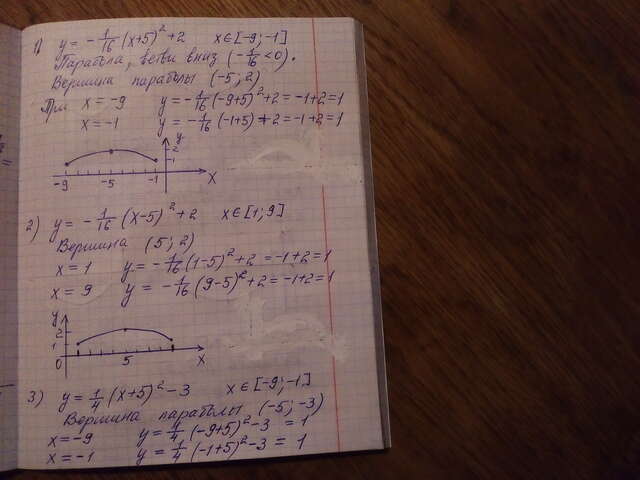 1) y = -1/16 (x+5)² + 2   x ∈ [-9; -1]
Парабола, ветви вниз (-1/16 < 0).
Вершина параболы (-5; 2)
При x = -9   y = -1/16 (-9+5)² + 2 = -1+2 = 1
x = -1   y = -1/16 (-1+5) + 2 = -1+2 = 1
y
2
1
-9 -5 -1 x
2) y = -1/16 (x-5)² + 2   x ∈ [1; 9]
Вершина (5; 2)
x = 1   y = -1/16 (1-5)² + 2 = -1+2 = 1
x = 9   y = -1/16 (9-5)² + 2 = -1+2 = 1
y
2
1
0 5 x
3) y = 1/4 (x+5)² - 3   x ∈ [-9; -1]
Вершина параболы (-5; -3)
x = -9   y = 1/4 (-9+5)² - 3 = 1
x = -1   y = 1/4 (-1+5)² - 3 = 1